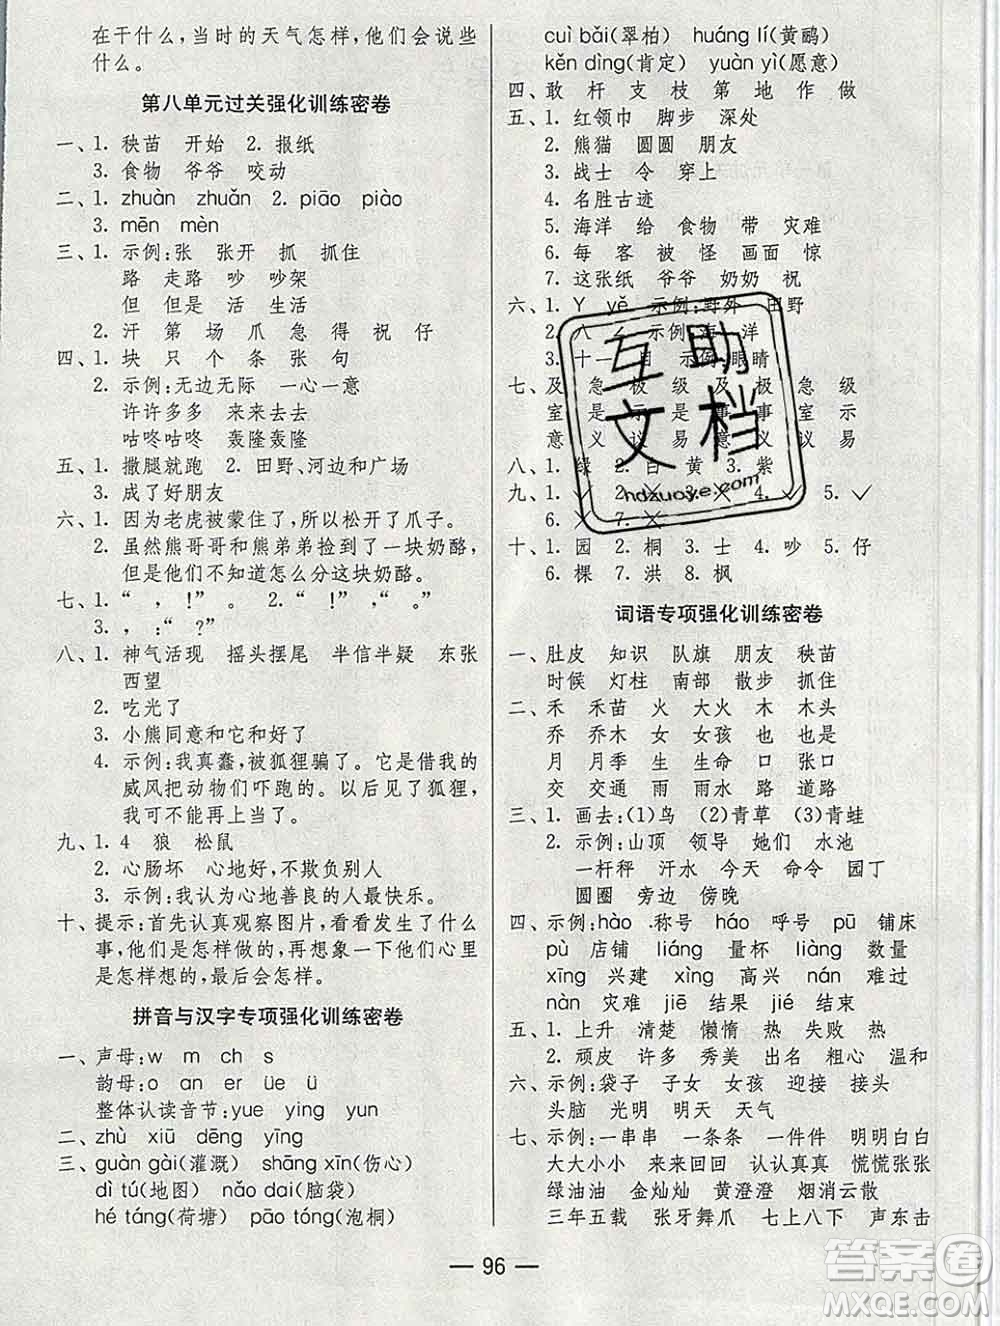 在干什么,当时的天气怎样,他们会说些
什么。
第八单元过关强化训练密卷
一、1. 秧苗 开始 2. 报纸
3. 食物 爷爷 咬动
二、1. zhuàn zhuǎn 2. piāo piào
3. mēn mèn
三、1. 示例:张 张开 抓 抓住
路 走路 吵 吵架
但 但是 活 生活
2. 汗 第 场 爪 急 得 祝 仔
四、1. 块 只 个 条 张 句
2. 示例:无边无际 一心一意
许许多多 来来去去
咕咚咕咚 轰隆轰隆
五、1. 撒腿就跑 2. 田野、河边和广场
3. 成了好朋友
六、1. 因为老虎被蒙住了,所以松开了爪子。
2. 虽然熊哥哥和熊弟弟捡到了一块奶酪,
但是他们不知道怎么分这块奶酪。
七、1. “ , !” 。 2. “ !”,“ 。”
3. , :“ ?”
八、1. 神气活现 摇头摆尾 半信半疑 东张
西望
2. 吃光了
3. 小熊同意和它和好了
4. 示例:我真蠢,被狐狸骗了。它是借我的
威风把动物们吓跑的。以后见了狐狸,
我可不能再上当了。
九、1. 4 狼 松鼠
2. 心肠坏 心地好,不欺负别人
3. 示例:我认为心地善良的人最快乐。
十、提示:首先认真观察图片,看看发生了什么
事,他们是怎样做的,再想象一下他们心里
是怎样想的,最后会怎样。
拼音与汉字专项强化训练密卷
一、声母:w m ch s
韵母:o an er üe ü
整体认读音节:yue ying yun
二、zhù xiū dēng yīng
三、guàn gài(灌溉) shāng xīn(伤心)
dì tú(地图) nǎo dai(脑袋)
hé táng(荷塘) pāo tóng(泡桐)
cuì bǎi(翠柏) huáng lí(黄鹂)
kěn dìng(肯定) yuàn yì(愿意)
四、敢 杆 支 枝 第 地 作 做
五、1. 红领巾 脚步 深处
2. 熊猫 圆圆 朋友
3. 战士 令 穿戴
4. 名胜古迹
5. 海洋 给 食物 带 灾难
6. 每 客 被 怪 画面 惊
7. 这张纸 爷爷 奶奶 祝
六、1. Y yě 示例:野外 田野
2. 八 示例:海 洋
3. 十一 目 示例:眼睛
七、及 急 极 级 及 极 急 级
室 是 示 是 事 事 室 示
意 义 议 易 意 义 议 易
八、1. 绿 2. 白 黄 3. 紫
九、1. ✓ 2. ✕ 3. ✕ 4. ✓ 5. ✓
6. ✕ 7. ✕
十、1. 园 2. 桐 3. 士 4. 吵 5. 仔
6. 棵 7. 洪 8. 枫
词语专项强化训练密卷
一、肚皮 知识 队旗 朋友 秧苗
时候 灯柱 南部 散步 抓住
二、禾 禾苗 火 大火 木 木头
乔 乔木 女 女孩 也 也是
月 月季 生 生命 口 张口
交 交通 雨 雨水 路 道路
三、1. 画去:(1)鸟 (2)青草 (3)青蛙
2. 示例:山顶 领导 她们 水池
一杆秤 汗水 今天 命令 园丁
圆圈 旁边 傍晚
四、示例:hào 称号 háo 呼号 pū 铺床
pù 店铺 liáng 量杯 liàng 数量
xīng 兴建 xìng 高兴 nán 难过
nàn 灾难 jiē 结果 jié 结束
五、1. 上升 清楚 懒惰 热 失败 热
2. 顽皮 许多 秀美 粗心 温和
六、示例:袋子 子女 女孩 迎接 接头
头脑 光明 明天 天气
七、示例:一串串 一条条 一件件 明明白白
大大小小 来来回回 认认真真 慌慌张张
绿油油 金灿灿 黄澄澄 烟消云散
三年五载 张牙舞爪 七上八下 声东击
— 96 —
互助
文档
hdzuoye.com
答案圈
MXQE.COM